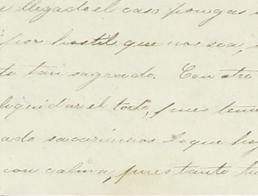 llegado el caso pongas
por hostil que nos sea,
tan sagrado. Con otro
liquidar el todo, pues
sacaríamos lo que hay
con calma, pues tanto